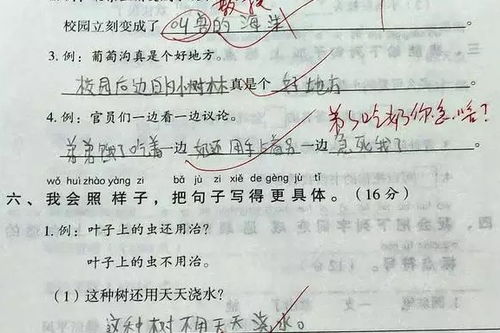 校园立刻变成了 叫 的海洋
3. 例：葡萄沟真是个好地方。
校园后边的小树林真是个 好地方
4. 例：官员们一边看一边议论。
弟弟 了吃着一边 奶还用 一边 急死我了
弟弟吃奶你急啥？
wǒ huì zhào yàng zi bǎ jù zi xiě de gèng jù tǐ
六、我会照样子，把句子写得更具体。（16分）
1. 例：叶子上的虫还用治？
叶子上的虫不用治。
（1）这种树还用天天浇水？
这种树不用天天浇水。